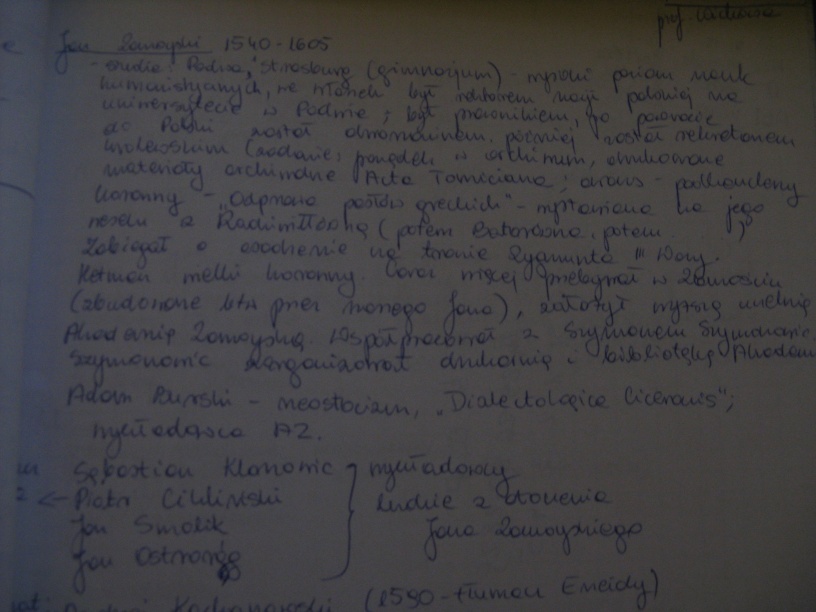 prof.
Jan Zamoyski 1540-1605
- studia: Padwa, Strasburg (gimnazjum) - wysoki poziom nauk
humanistycznych, we Włoszech był rektorem nacji polskiej na
uniwersytecie w Padwie; był prawnikiem, po powrocie
do Polski został dworzaninem, później został sekretarzem
królewskim (zadanie: porządek w archiwum, drukowane
materiały archiwalne Acta Tomiciana; awans - podkanclerzy
koronny - "Odprawa posłów greckich" - wystawiona na jego
weselu z Radziwiłłówną (potem Batorówna, potem )
Zabiegał o osadzenie na tronie Zygmunta III Wazy.
Hetman wielki koronny. Coraz więcej przebywał w Zamościu
(zbudowane przez samego Jana), założył wyższą uczelnię
Akademię Zamoyską. Współpracował z Szymonem Szymonowic.
Szymonowic zorganizował drukarnię i bibliotekę Akadem
Adam Burski - neostoicyzm, "Dialectologica Ciceronis";
wykładowca AZ.
Sebastian Klonowic } wykładowcy
<- Piotr Cikliński ludzie z otoczenia
Jan Smolik Jana Zamoyskiego
Jan Ostroróg
Kochanowski (1590 - tłumacz Eneidy)